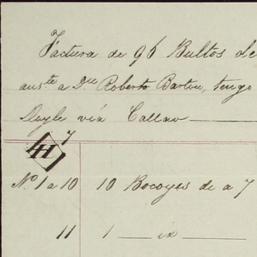 Factura de 96 Bultos de
aus.te a D.n Roberto Barton, tengo
Doyle vía Callao
7
H
Nº 1 a 10 10 Bocoyes de a 7
11 1 — id —